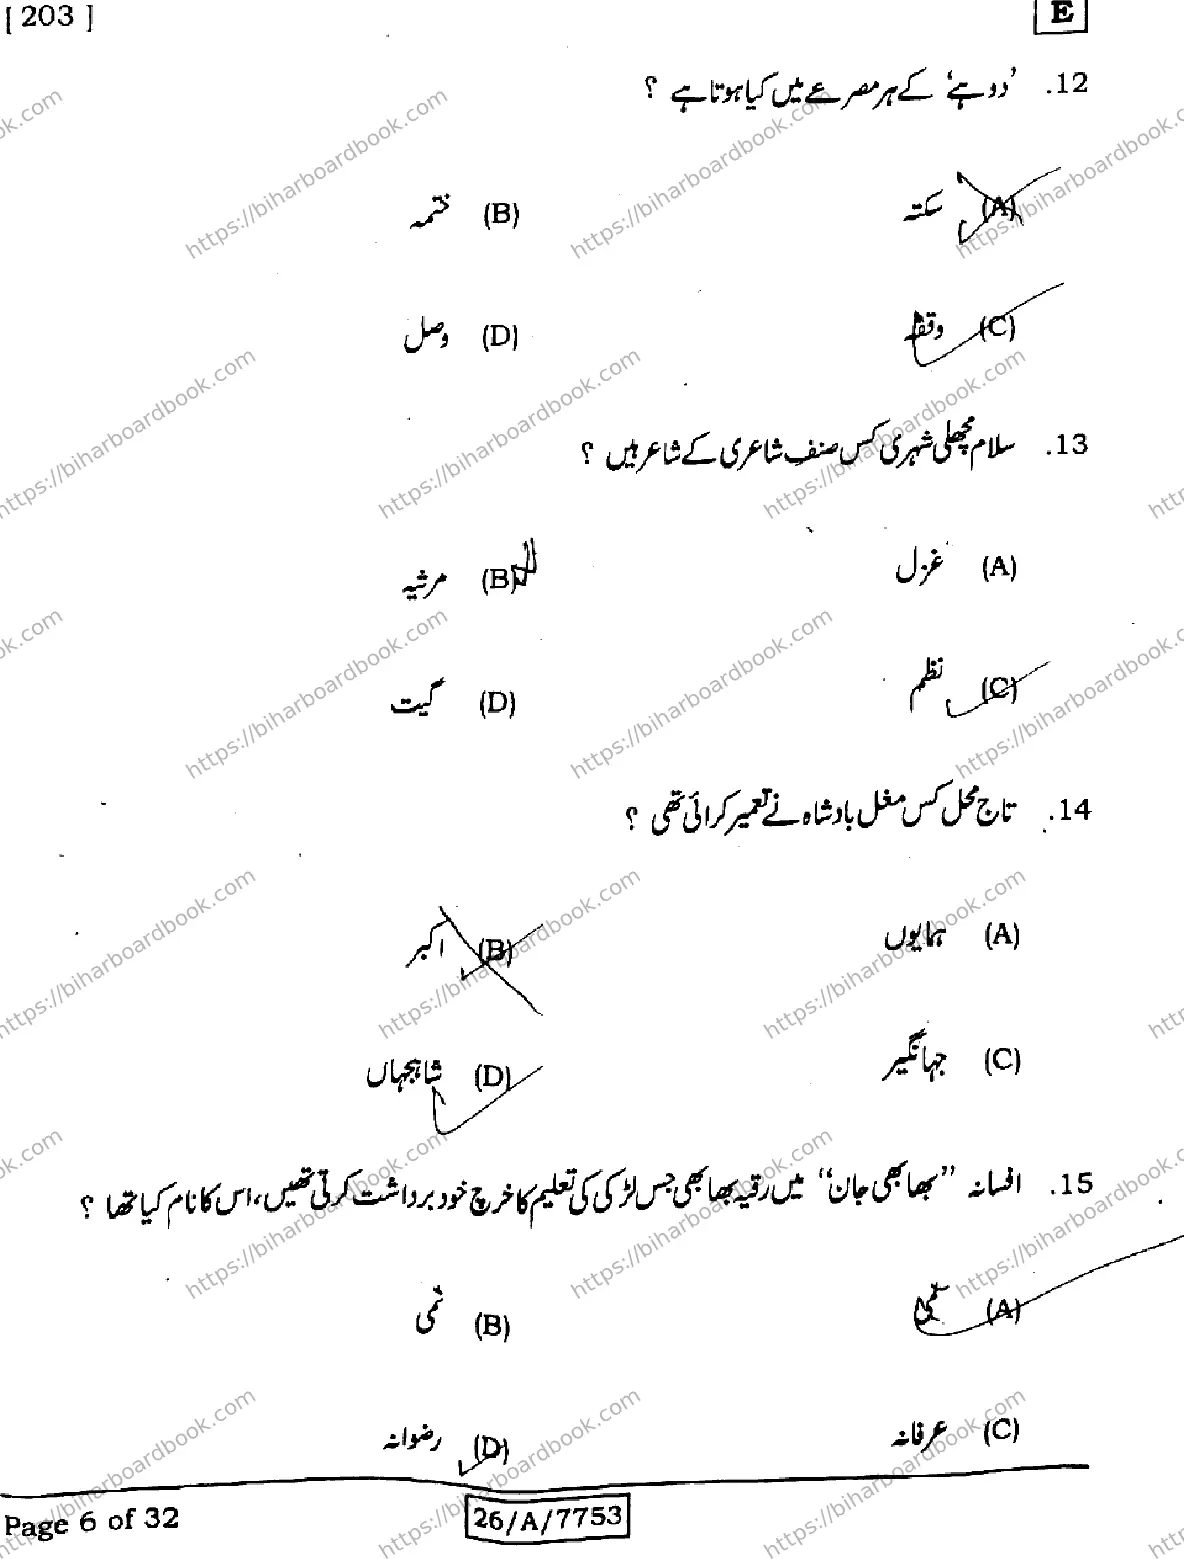 [ 203 ]
E
12. 'دوہے' کے ہر مصرعے میں کیا ہوتا ہے ؟
(A) سکتہ
(B) ختمہ
(C) وقفہ
(D) وصل
13. سلام مچھلی شہری کس صنف شاعری کے شاعر ہیں ؟
(A) غزل
(B) مرثیہ
(C) نظم
(D) گیت
14. تاج محل کس مغل بادشاہ نے تعمیر کرائی تھی ؟
(A) ہمایوں
(B) اکبر
(C) جہانگیر
(D) شاہجہاں
15. افسانہ "بھابھی جان" میں رقیہ بھابھی جس لڑکی کی تعلیم کا خرچ خود برداشت کرتی تھیں، اس کا نام کیا تھا ؟
(A) سلمیٰ
(B) ثمی
(C) عرفانہ
(D) رضوانہ
Page 6 of 32
26/A/7753
https://biharboardbook.com